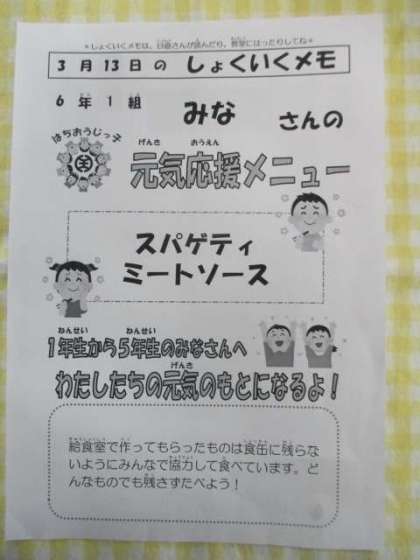 ＊しょくいくメモは、日直さんが読んだり、教室にはったりしてね＊
3月13日のしょくいくメモ
6年1組 みな さんの
はちおうじっ子
元気応援メニュー
スパゲティ
ミートソース
1年生から5年生のみなさんへ
わたしたちの元気のもとになるよ！
給食室で作ってもらったものは食缶に残らな
いようにみんなで協力して食べています。ど
んなものでも残さずたべよう！